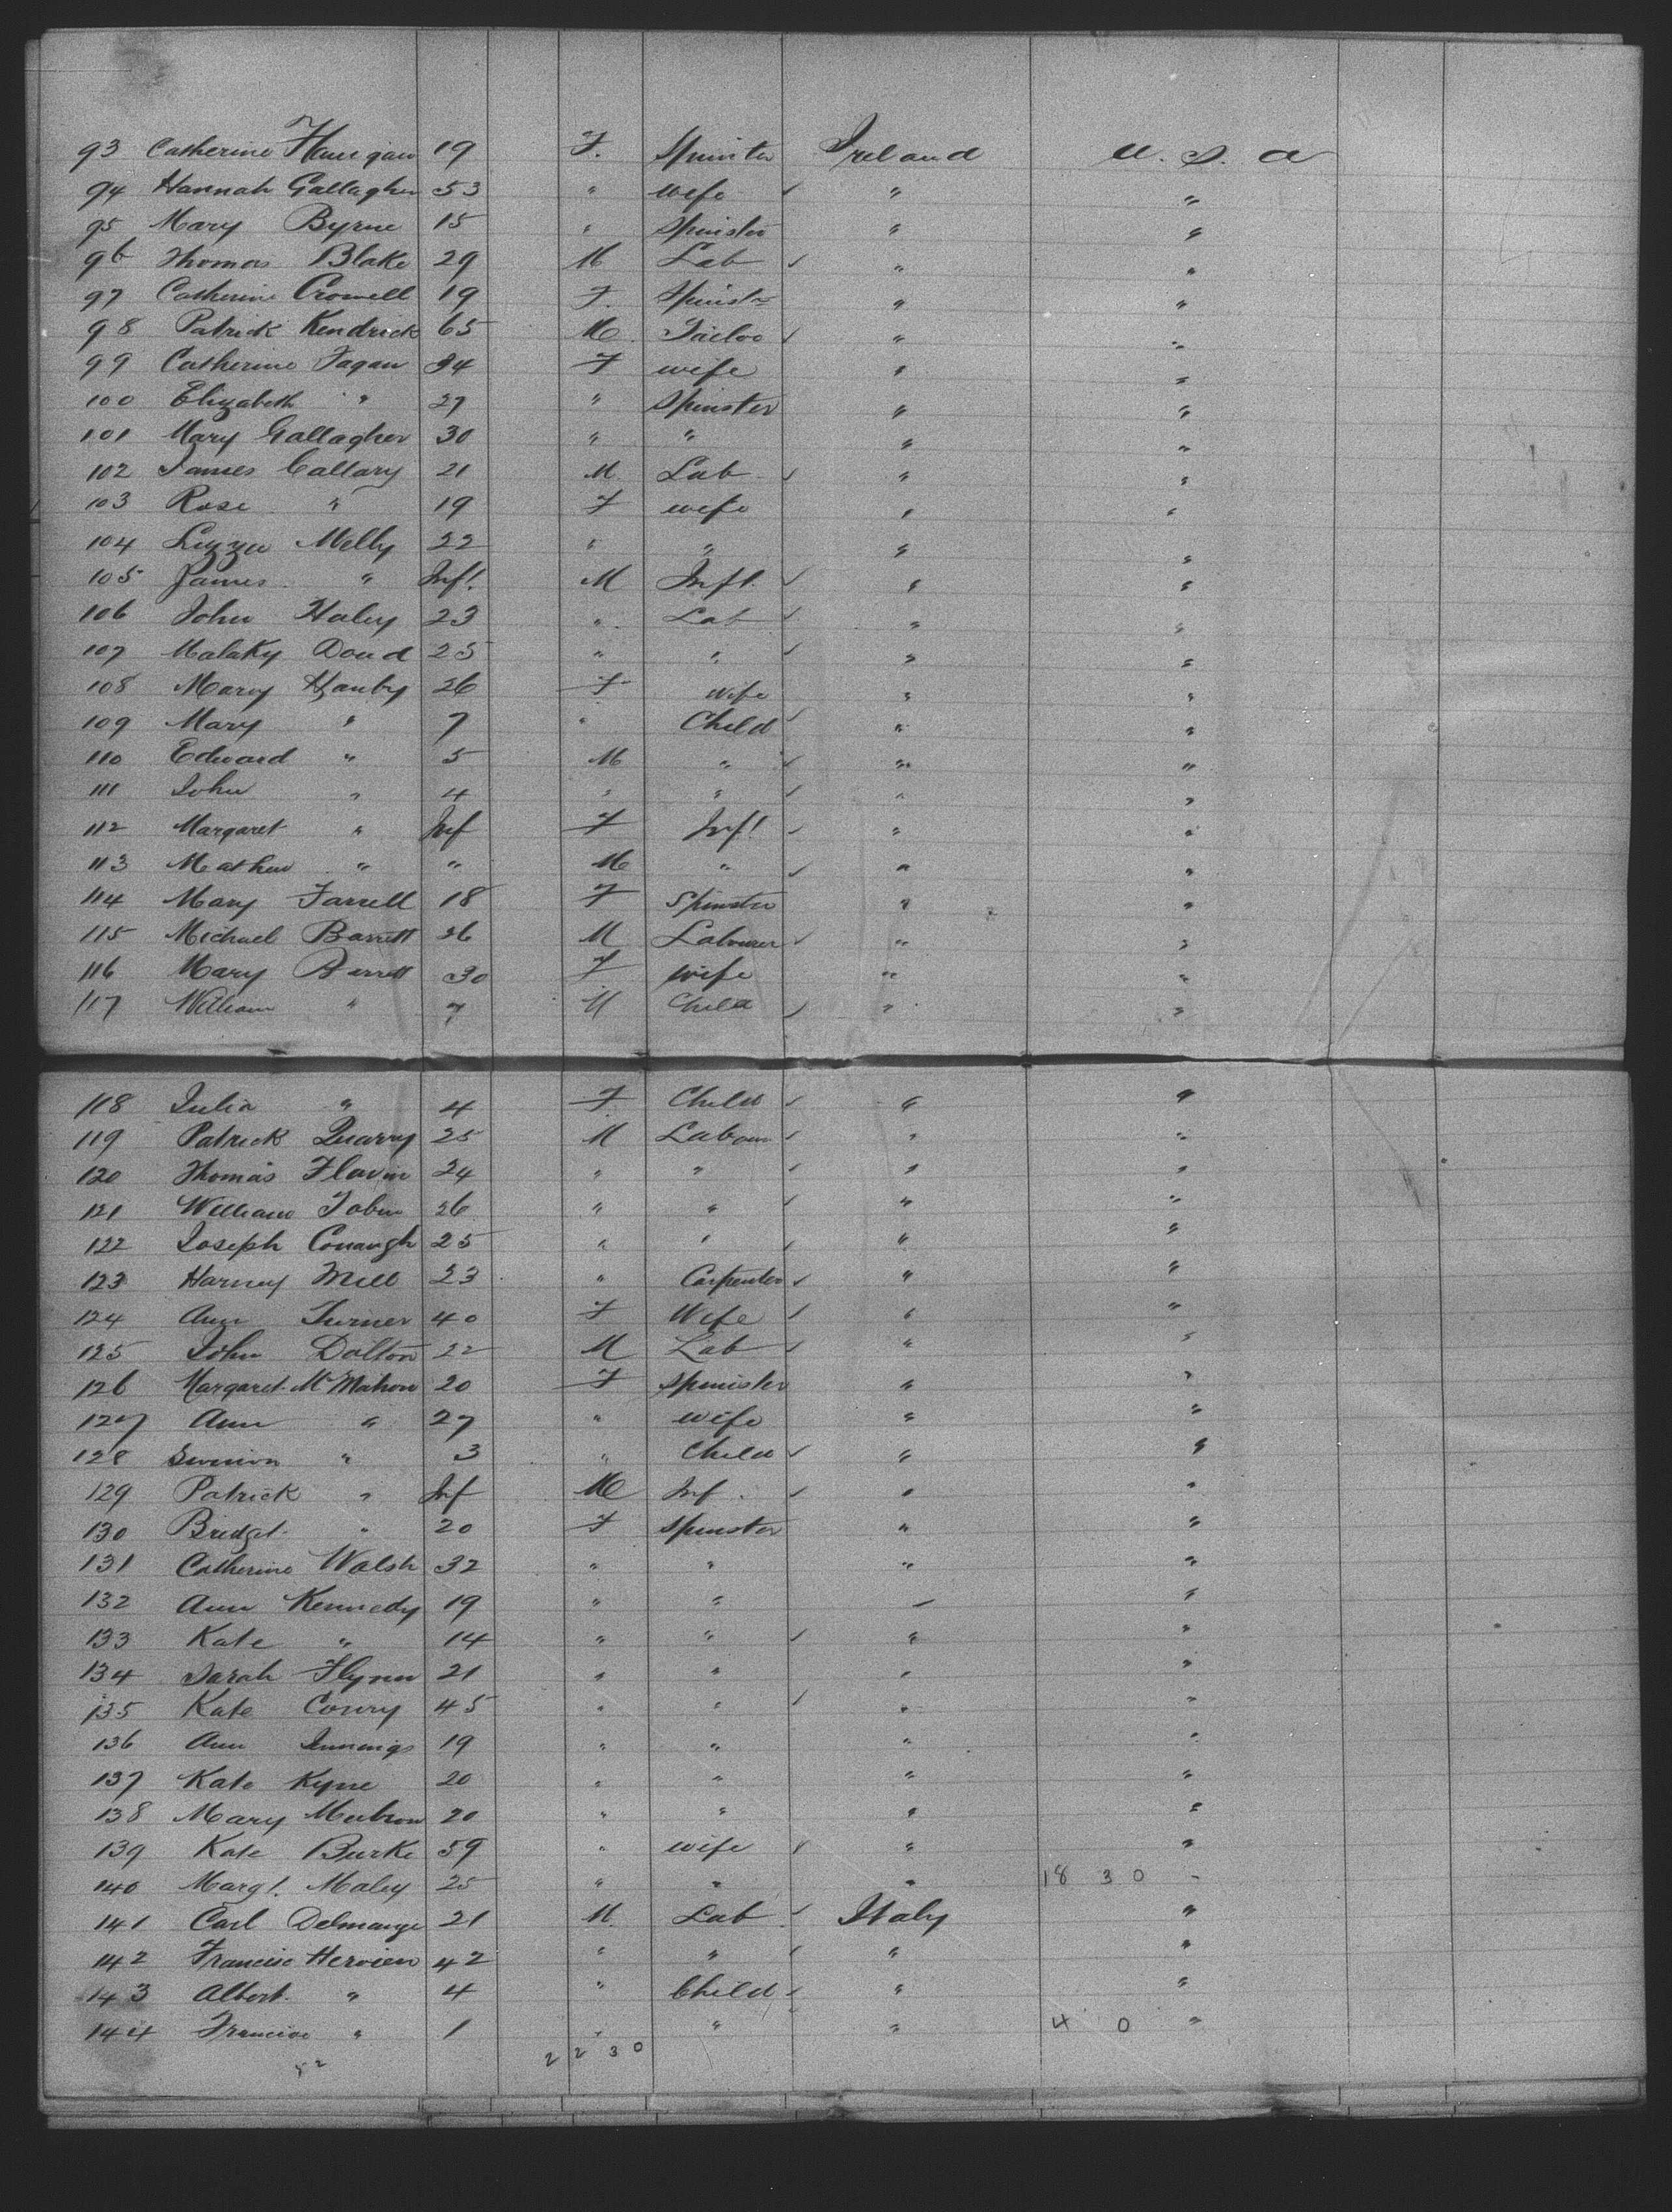 93 Catherine 19 F. Spinster Ireland U. S. A
94 Hannah Gallagher 53 " wife ✓ " "
95 Mary Byrne 15 " Spinster " "
96 Thomas Blake 29 M Lab ✓ " "
97 Catherine Crowell 19 F. Spinstr " "
98 Patrick Kendrick 65 M. Tailor ✓ " "
99 Catherine Fagan 34 F wife " "
100 Elizabeth " 27 " Spinster " "
101 Mary Gallagher 30 " " " "
102 James Callary 21 M. Lab ✓ " "
103 Rose " 19 F wife " "
104 Lizzie Melly 22 " " " "
105 James " Inft. M Inft. ✓ " "
106 John Haley 23 " Lab ✓ " "
107 Malaky Doud 25 " " ✓ " "
108 Mary Hanby 26 F wife " "
109 Mary " 7 " Child ✓ " "
110 Edward " 5 M " ✓ " "
111 John " 4 " " ✓ " "
112 Margaret " Inf F Inft ✓ " "
113 Mathew " " M " ✓ " "
114 Mary Farrell 18 F Spinster " "
115 Michael Barrett 26 M Labourer ✓ " "
116 Mary Barrett 30 F wife " "
117 William " 7 M Child ✓ " "
118 Julia " 4 F Child ✓ " "
119 Patrick Quarry 25 M Labour ✓ " "
120 Thomas Flavin 24 " " ✓ " "
121 William Tobin 26 " " ✓ " "
122 Joseph Conaugh 25 " " ✓ " "
123 Harney Mill 23 " Carpenter ✓ " "
124 Ann Turner 40 F Wife ✓ " "
125 John Dalton 22 M Lab ✓ " "
126 Margaret McMahon 20 F Spinister " "
127 Ann " 27 " wife " "
128 " 3 " Child ✓ " "
129 Patrick " Inf M Inf. ✓ " "
130 Bridget " 20 F Spinster " "
131 Catherine Walsh 32 " " " "
132 Ann Kennedy 19 " " " "
133 Kate " 14 " " ✓ " "
134 Sarah Flynn 21 " " " "
135 Kate Conry 45 " " ✓ " "
136 Ann Jennings 19 " " " "
137 Kate Kyne 20 " " " "
138 Mary 20 " " " "
139 Kate Burke 59 " wife ✓ " "
140 Margt. Maley 25 " " " 18 30 "
141 Carl Delmange 21 M. Lab ✓ Italy "
142 Francisc Hervien 42 " " ✓ " "
143 Albert " 4 " Child ✓ " "
144 " 1 " " " 4 0 "
52 22 30